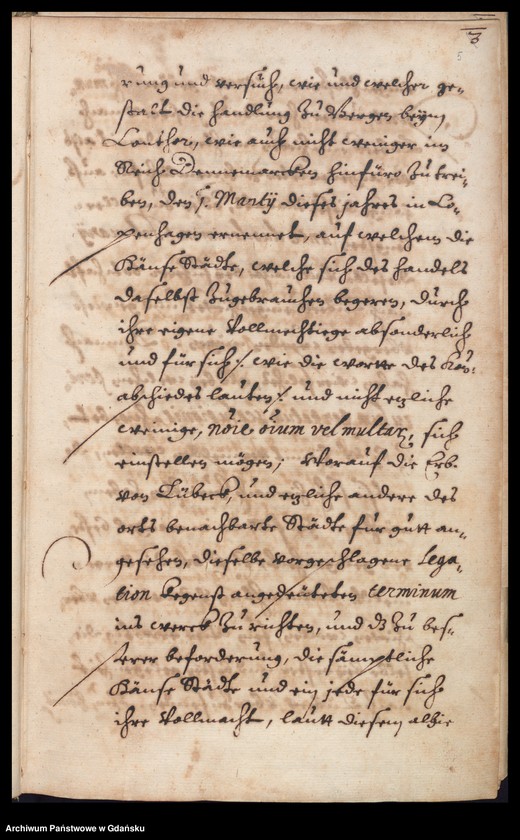 3
5
rung und versuch, wie und welcher ge-
stalt die handlung zu Bergen beym
Conthor, wie auch nicht weniger im
Reich Dennemarcken hinfüro zu trei-
ben, den j. Martij dieses jahres in Co-
penhagen ernennet, auf welchem die
Hänse Städte, welche sich des handels
daselbst zugebrauchen begeren, durch
ihre eigene Vollmechtiege absonderlich
und für sich /: wie die wortte des
abschiedes lauten :/ und nicht etzliche
wenige, noie oium vel multar, sich
einstellen mögen; Worauf die Erb.
von Lübeck, und etzliche andere des
orts benachbarte Städte für gutt an-
gesehen, dieselbe vorgeschlagene Lega-
tion kegenst angedeuteten terminum
ins werck zu richten, und dz zu bes-
serer beforderung, die sämptliche
Hänse Städte und ein jede für sich
ihre Vollmacht, lautt diesem alhie
Archiwum Państwowe w Gdańsku